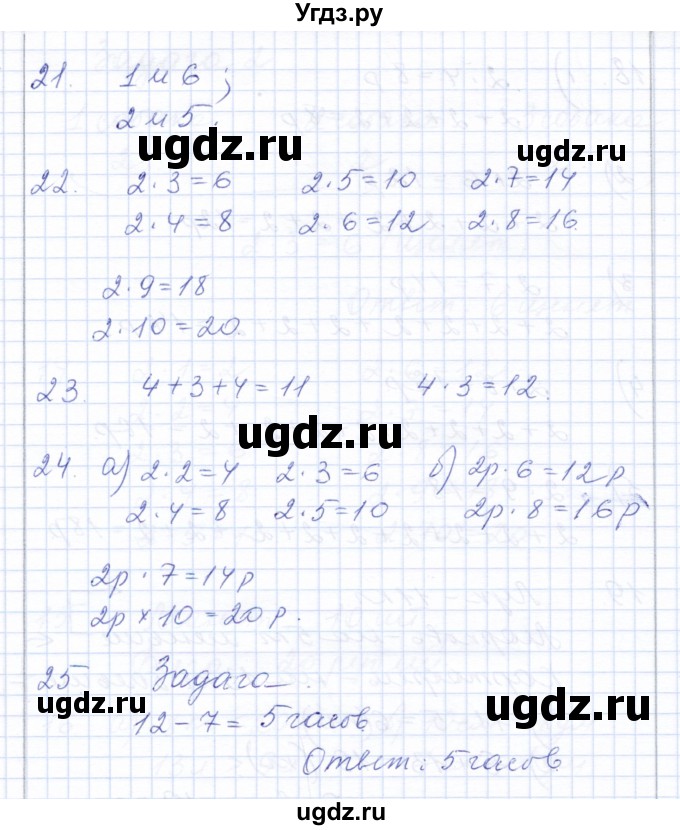 Угдз.ру
21. 1 и 6 ;
2 и 5.
ugdz.ru ugdz.ru
22. 2·3=6 2·5=10 2·7=14
2·4=8 2·6=12 2·8=16
2·9=18
2·10=20.
23. 4+3+4=11 4·3=12.
ugdz.ru
24. а) 2·2=4 2·3=6 б) 2р·6=12р
2·4=8 2·5=10 2р·8=16р
2р·7=14р
2р×10=20р.
25 Задача.
ugdz.ru ugdz.ru
12-7= 5 часов
Ответ: 5 часов
ugdz.ru